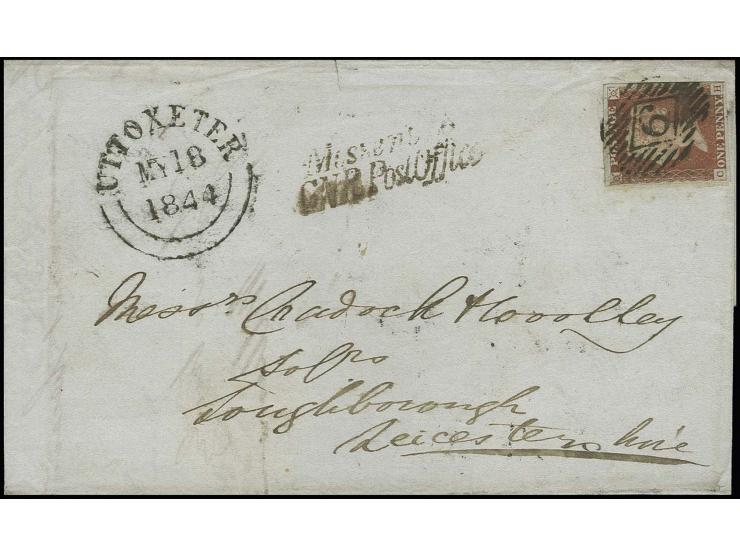 UTTOXETER
MY 18
1844
Missent to
G.N.R. Post Office
POSTAGE
ONE PENNY
C H
6
Messrs Cradock & Woolley
Solrs
Loughborough
Leicestershire